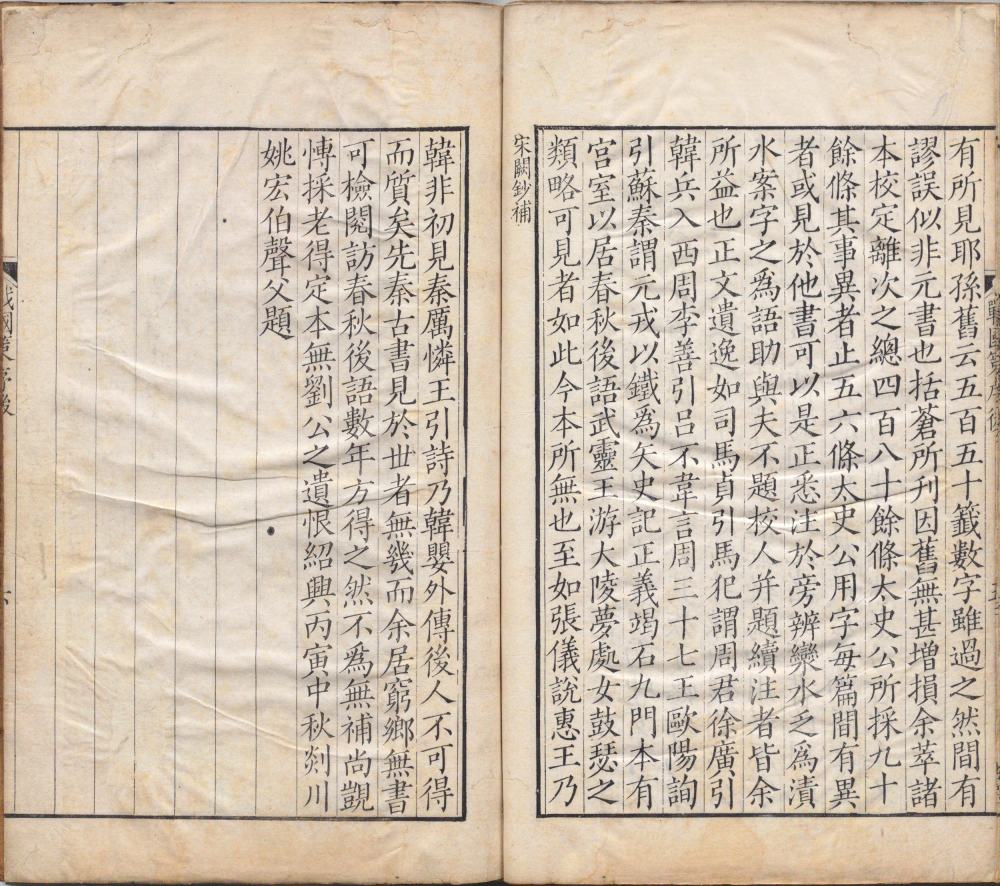 有所見耶孫舊云五百五十籤數字雖過之然間有
謬誤似非元書也括蒼所刊因舊無甚增損余萃諸
本校定離次之總四百八十餘條太史公所採九十
餘條其事異者止五六條太史公用字每篇間有異
者或見於他書可以是正悉注於旁辨㶟水之爲漬
水案字之爲語助與夫不題校人并題續注者皆余
所益也正文遺逸如司馬貞引馬犯謂周君徐廣引
韓兵入西周李善引呂不韋言周三十七王歐陽詢
引蘇秦謂元戎以鐵爲矢史記正義竭石九門本有
宮室以居春秋後語武靈王游大陵夢處女鼓瑟之
類略可見者如此今本所無也至如張儀說惠王乃
宋闕鈔補
韓非初見秦厲憐王引詩乃韓嬰外傳後人不可得
而質矣先秦古書見於世者無幾而余居窮鄉無書
可檢閱訪春秋後語數年方得之然不爲無補尚覬
慱採老得定本無劉公之遺恨紹興丙寅中秋剡川
姚宏伯聲父題
戰國策序後
六